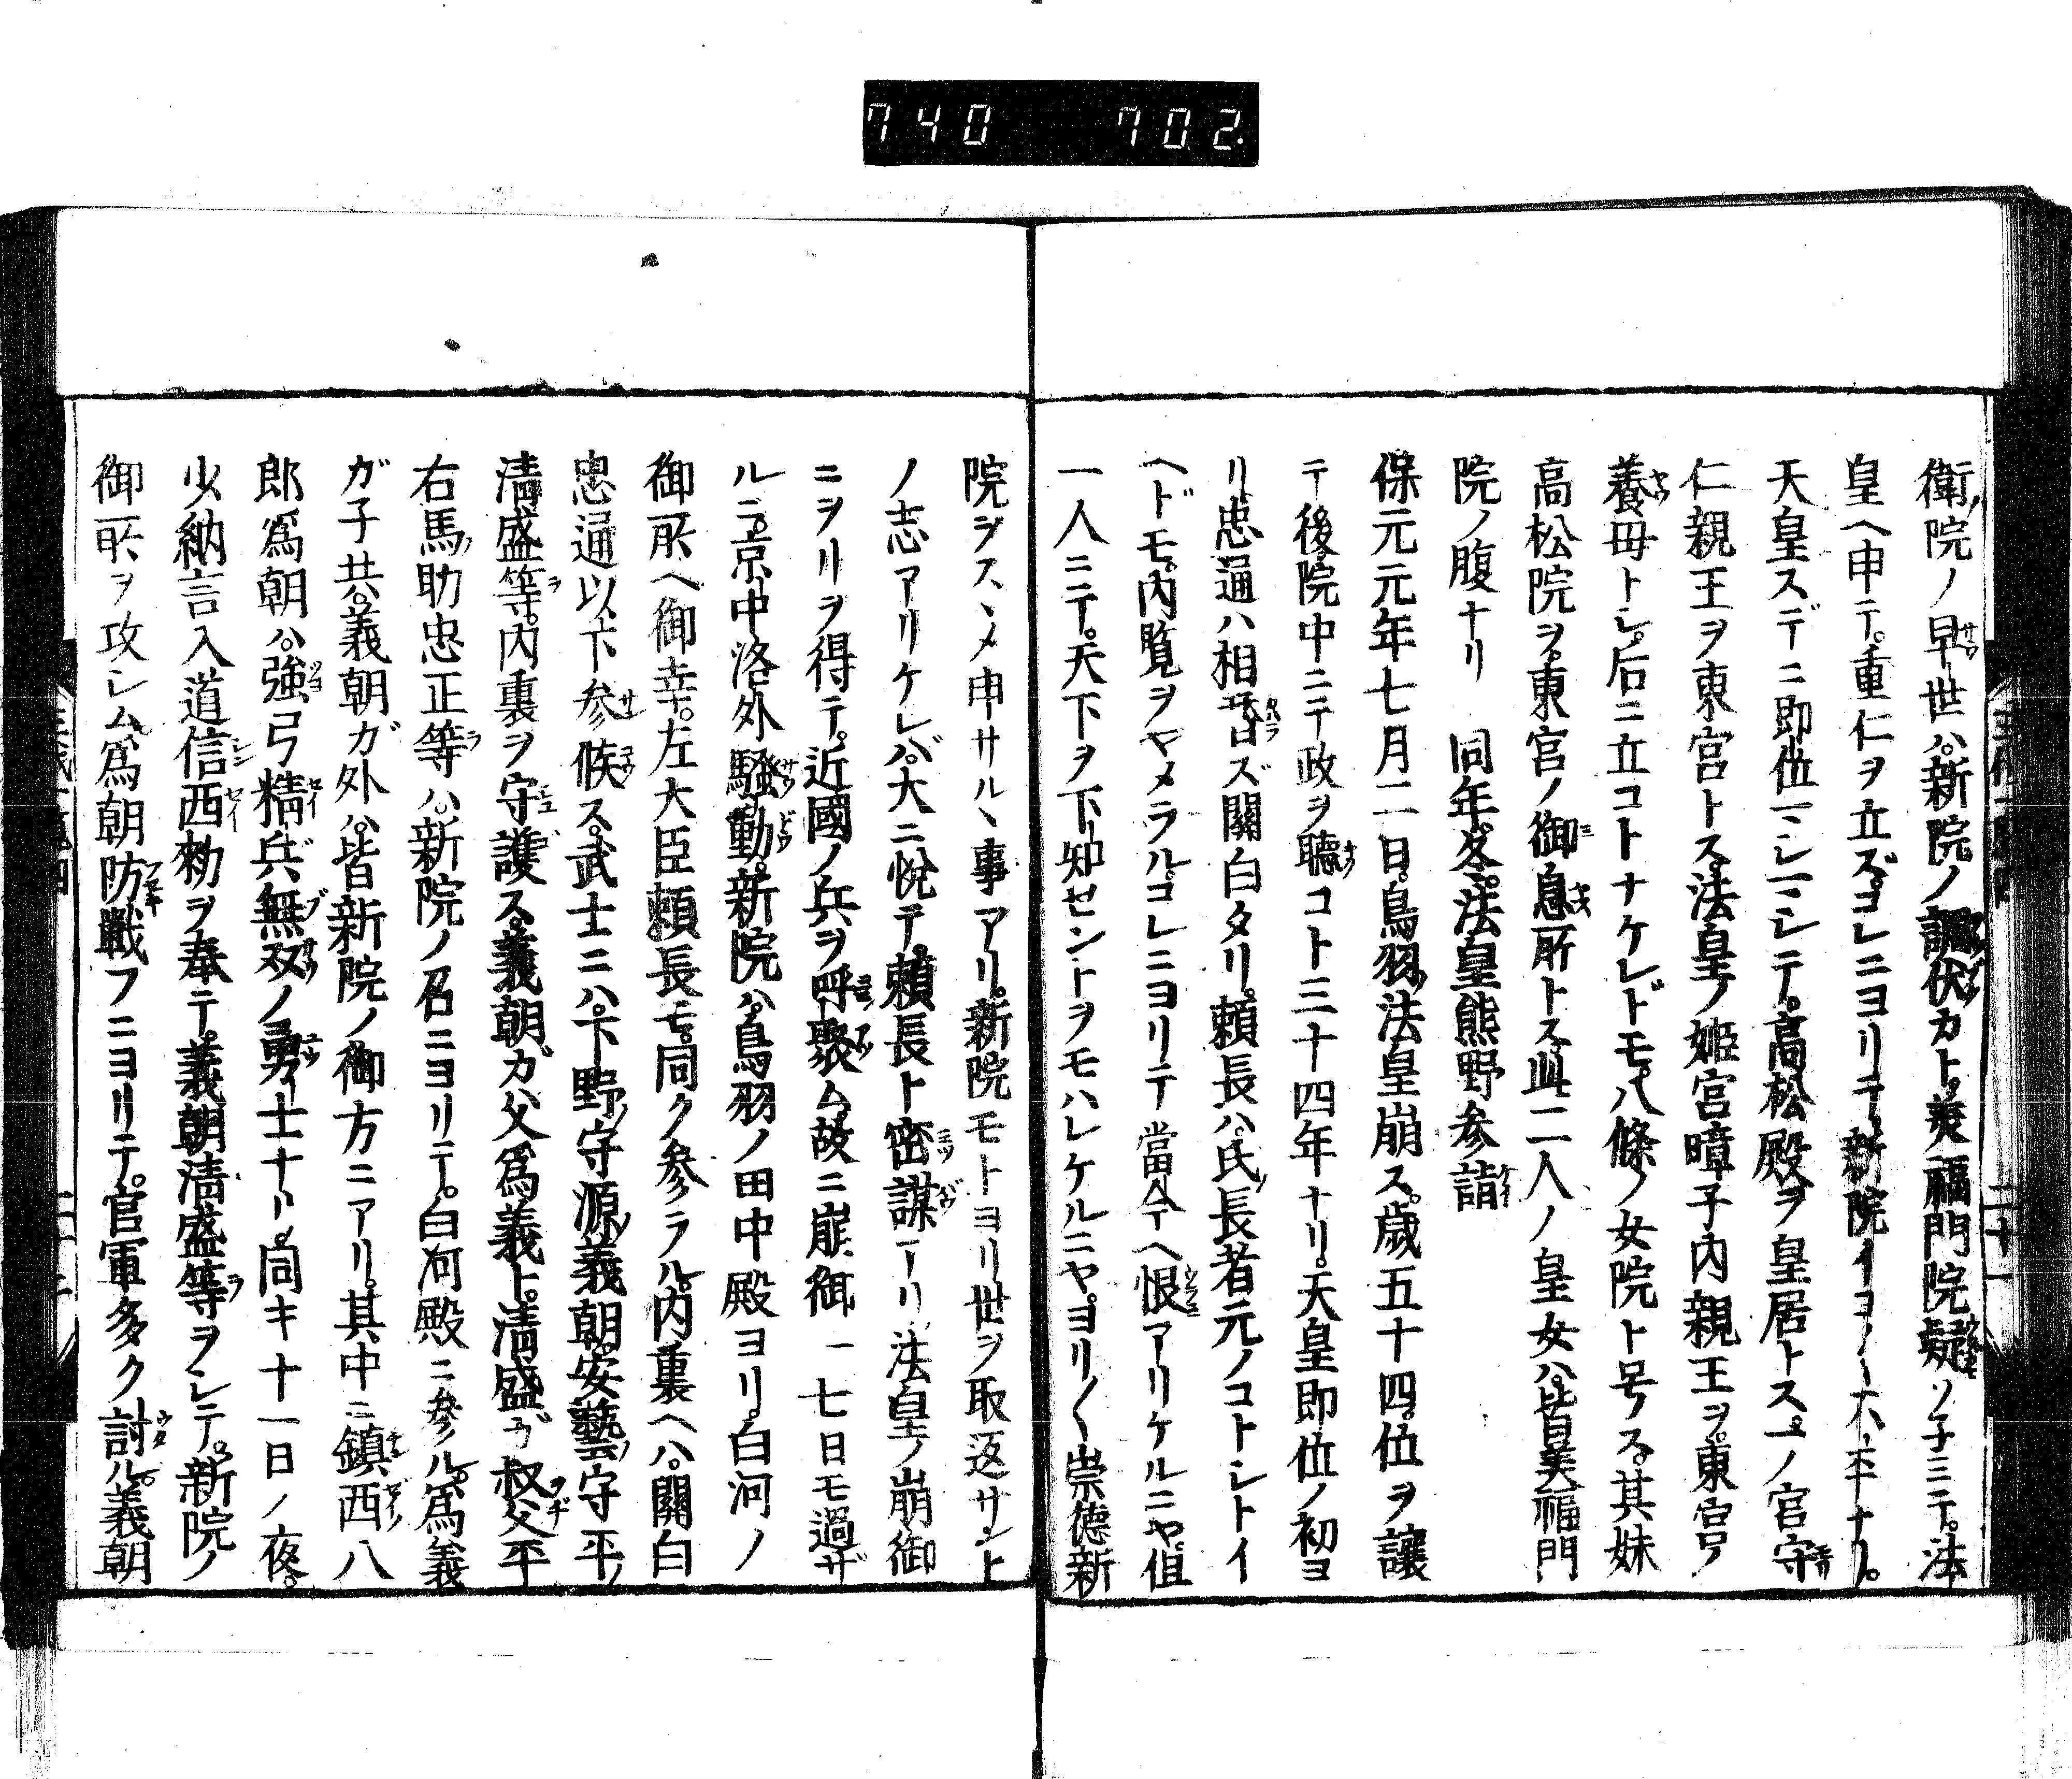 740 702.
衛院ノ早世ハ。新院ノ調伏カト。美福門院疑ソ子ミテ。法
皇ヘ申テ。重仁ヲ立ズ。コレニヨリテ。新院イヨ〱不平ナリ。
天皇スデニ即位マシ〱テ。高松殿ヲ皇居トス。ユノ宮守
仁親王ヲ東宮トス。法皇ノ姫宮暲子内親王ヲ。東宮ノ
養母トシ。后ニ立コトナケレドモ。八條ノ女院ト号ス。其妹
高松院ヲ。東宮ノ御息所トス。此二人ノ皇女ハ。皆美福門
院ノ腹ナリ　同年。冬。法皇熊野参詣
保元元年七月二日。鳥羽法皇崩ス。歳五十四。位ヲ譲
テ後。院中ニテ政ヲ聴コト三十四年ナリ。天皇即位ノ初ヨ
リ忠通ハ相替ズ關白タリ。頼長ハ。氏長者元ノコトシトイ
ヘドモ。内覧ヲヤメラル。コレニヨリテ當今ヘ恨アリケルニヤ。但
一人ニテ。天下ヲ下知セントヲモハレケルニヤ。ヨリ〱崇徳新
院ヲスヽメ申サルヽ事アリ。新院モトヨリ世ヲ取返サント
ノ志アリケレバ。大ニ悦テ。頼長ト密謀アリ。法皇ノ崩御
ニヲリヲ得テ。近國ノ兵ヲ呼聚ム。故ニ崩御一七日モ過ザ
ルニ。京中洛外騒動。新院ハ。鳥羽ノ田中殿ヨリ。白河ノ
御所ヘ御幸。左大臣頼長モ。同ク参ラル。内裏ヘハ。關白
忠通以下参候ス。武士ニハ。下野守源義朝。安藝守平ノ
清盛等。内裏ヲ守護ス。義朝ガ父爲義ト。清盛ガ叔父平
右馬助忠正等ハ。新院ノ召ニヨリテ。白河殿ニ參ル。爲義
ガ子共。義朝ガ外ハ。皆新院ノ御方ニアリ。其中ニ鎮西八
郎爲朝ハ。強弓精兵無双ノ勇士ナリ。同キ十一日ノ夜。
少納言入道信西勅ヲ奉テ。義朝清盛等ヲシテ。新院ノ
御所ヲ攻シム。爲朝防戰フニヨリテ。官軍多ク討ル。義朝